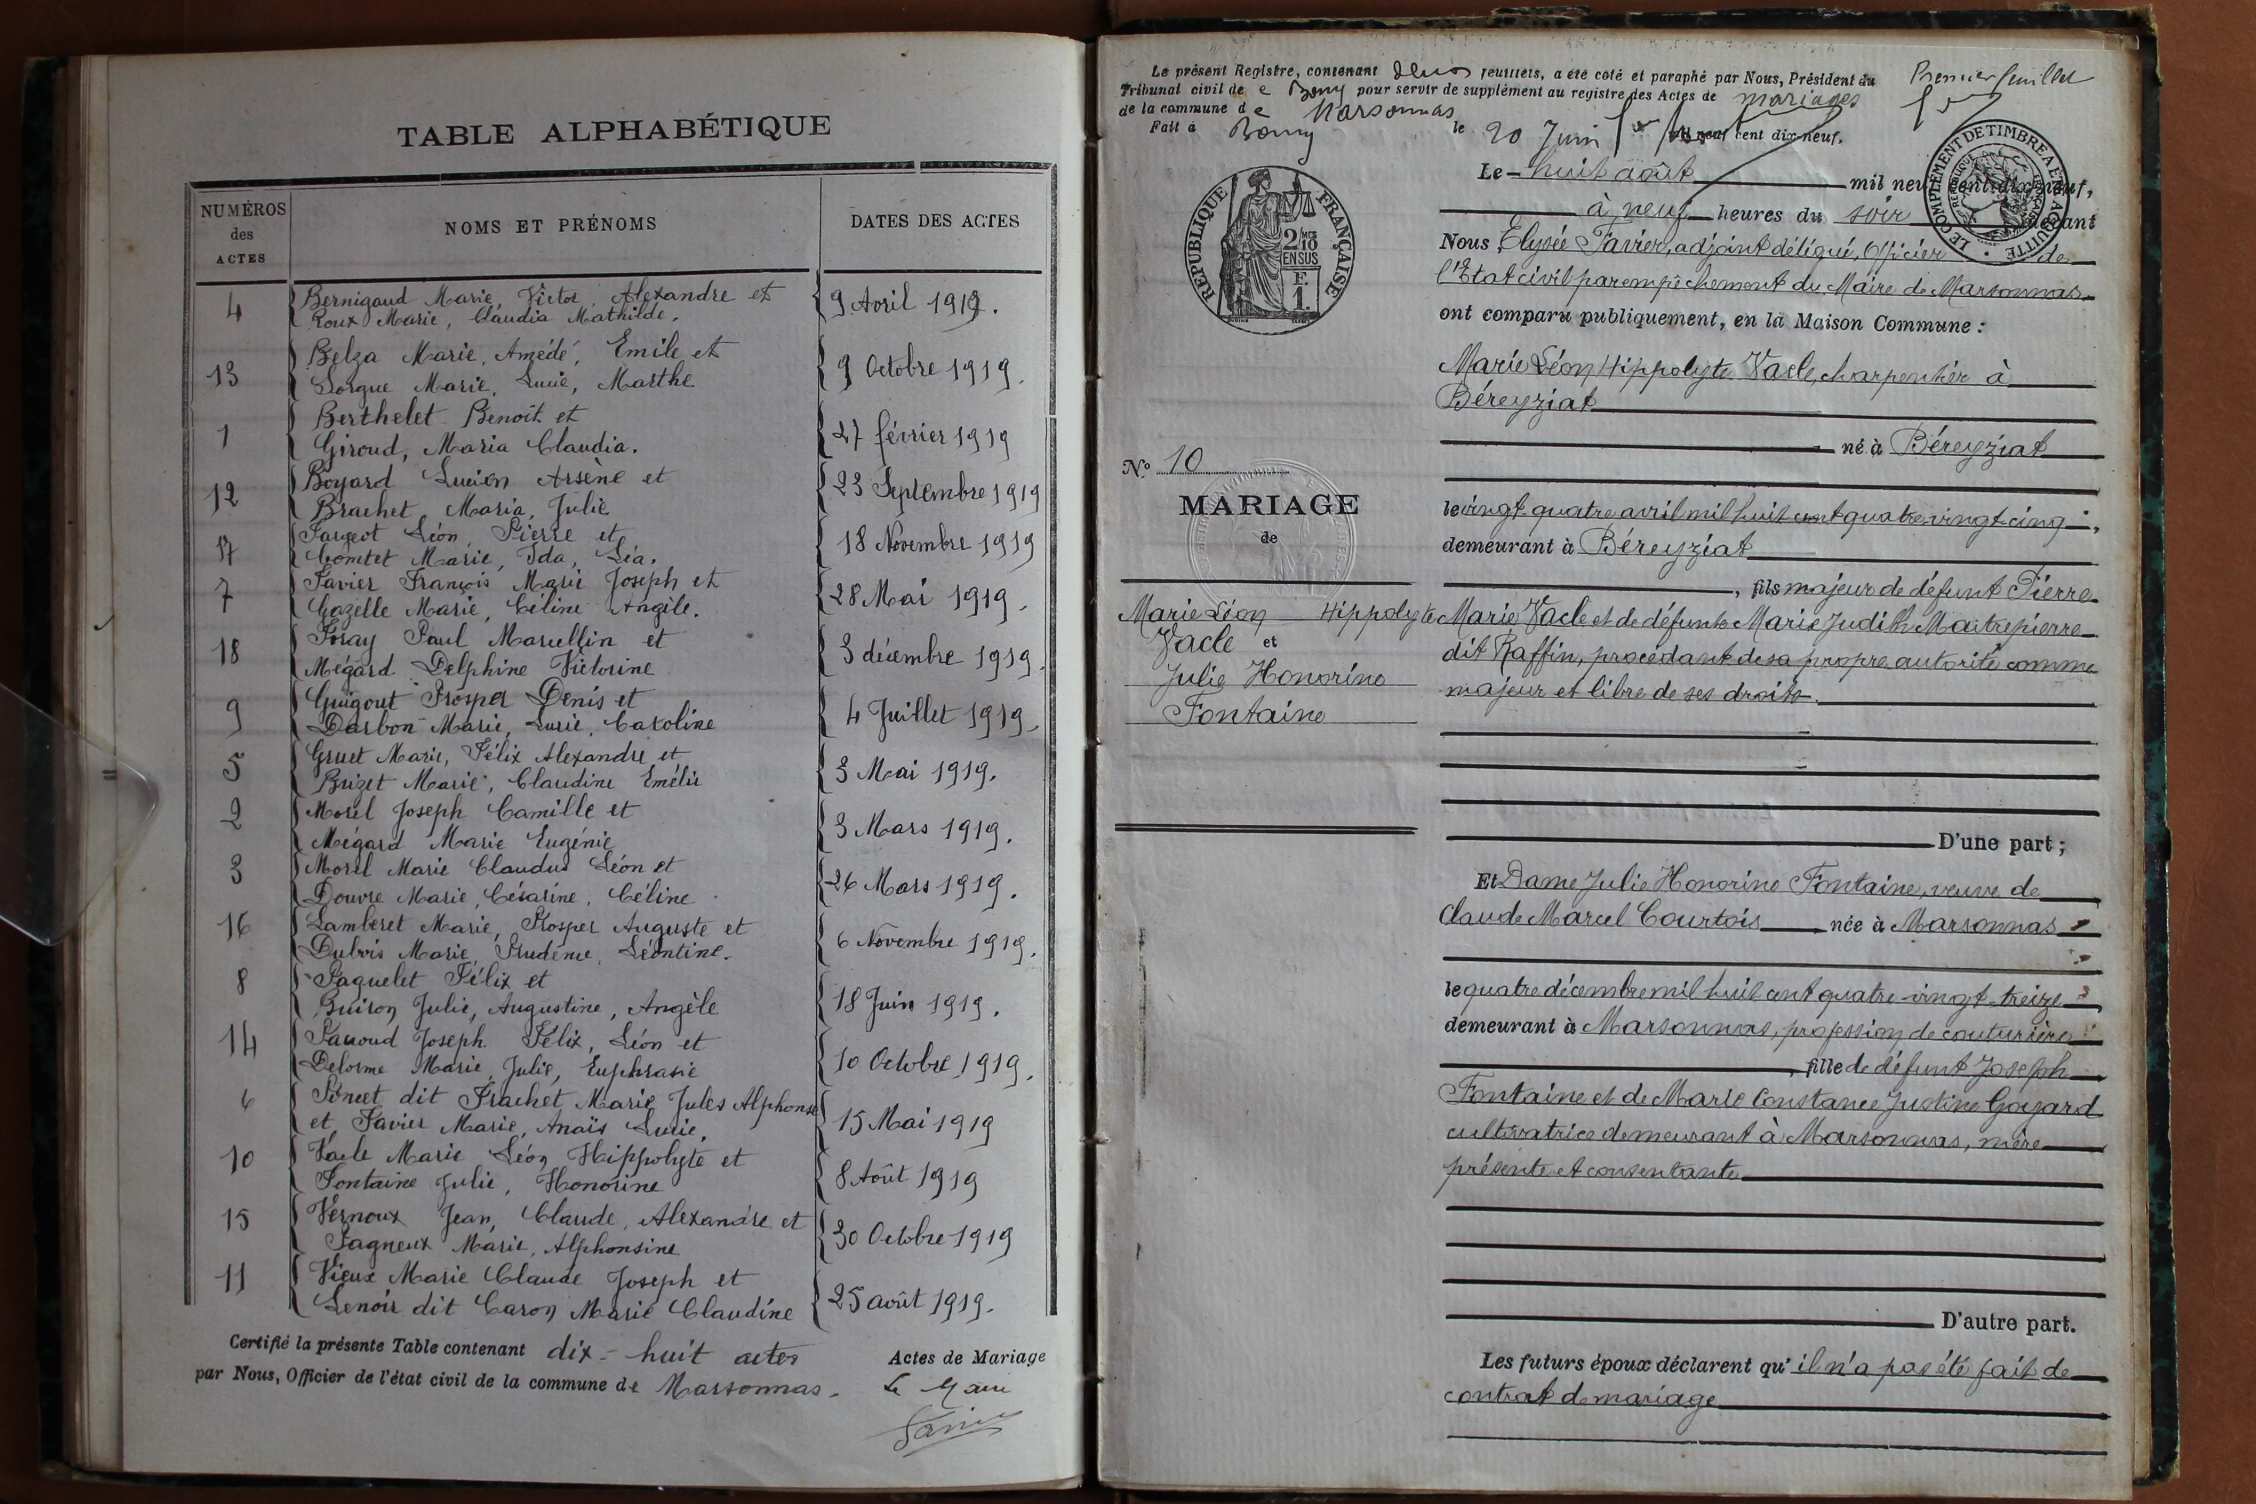 TABLE ALPHABÉTIQUE
NUMÉROS des ACTES
NOMS ET PRÉNOMS
DATES DES ACTES
4 Bernigaud Marie, Victor, Alexandre et
Roux Marie, Claudia Mathilde. 9 Avril 1919.
13 Belza Marie, Amédé, Emile et
Sorgue Marie, Lucie, Marthe 9 Octobre 1919.
1 Berthelet Benoît et
Giroud, Maria Claudia. 27 février 1919
12 Boyard Lucien Arsène et
Brachet Maria, Julie 23 Septembre 1919
17 Fargeot Léon, Pierre et
Comtet Marie, Ida, Léa. 18 Novembre 1919
7 Favier François Marie Joseph et
Gazelle Marie, Céline Angèle. 28 Mai 1919.
18 Foray Paul Marcellin et
Mégard Delphine Victorine 3 décembre 1919.
9 Guigout Prosper Denis et
Darbon Marie, Lucie, Caroline 4 Juillet 1919.
5 Gruet Marie, Félix Alexandre et
Brizet Marie, Claudine Emélie 3 Mai 1919.
2 Morel Joseph Camille et
Mégard Marie Eugénie 3 Mars 1919.
3 Morel Marie Claudus Léon et
Douvre Marie, Césarine, Céline 26 Mars 1919.
16 Lamberet Marie, Prosper Auguste et
Dubois Marie, Prudence, Léontine. 6 Novembre 1919.
8 Paquelet Félix et
Buiron Julie, Augustine, Angèle 18 Juin 1919.
14 Joseph Félix, Léon et
Delorme Marie, Julie, Euphrasie 10 Octobre 1919.
6 Poncet dit Frachet Marie Jules Alphonse
et Favier Marie, Anaïs Lucie. 15 Mai 1919
10 Vacle Marie Léon Hippolyte et
Fontaine Julie, Honorine 8 Août 1919
15 Vernoux Jean, Claude, Alexandre et
Pagneux Marie, Alphonsine 30 Octobre 1919
11 Vieux Marie Claude Joseph et
Lenoir dit Caron Marie Claudine 25 août 1919.
Certifié la présente Table contenant dix-huit actes Actes de Mariage
par Nous, Officier de l'état civil de la commune de Marsonnas. Le Maire
Favier
Le présent Registre, contenant deux feuillets, a été coté et paraphé par Nous, Président du
Tribunal civil de Bourg pour servir de supplément au registre des Actes de mariages
de la commune de Marsonnas
Fait à Bourg le 20 Juin mil neuf cent dix-neuf.
Premier feuillet
RÉPUBLIQUE FRANÇAISE
2/10 MES EN SUS
1 F.
LE COMPLÉMENT DE TIMBRE A ÉTÉ ACQUITTÉ
Le huit août mil neuf cent dix-neuf,
à neuf heures du soir devant
Nous, Elysée Favier, adjoint délégué, Officier de
l'Etat civil par empêchement du Maire de Marsonnas
ont comparu publiquement, en la Maison Commune :
Marie Léon Hippolyte Vacle, charpentier à
Béreyziat
né à Béreyziat
le vingt quatre avril mil huit cent quatre vingt cinq,
demeurant à Béreyziat
, fils majeur de défunt Pierre
Marie Vacle et de défunte Marie Judith Maitrepierre
dit Raffin, procédant de sa propre autorité comme
majeur et libre de ses droits.
D'une part ;
No 10
MARIAGE
de
Marie Léon Hippolyte
Vacle et
Julie Honorine
Fontaine
Et Dame Julie Honorine Fontaine, veuve de
Claude Marcel Courtois née à Marsonnas
le quatre décembre mil huit cent quatre-vingt-treize
demeurant à Marsonnas, profession de couturière
, fille de défunt Joseph
Fontaine et de Marie Constance Justine Goyard
cultivatrice demeurant à Marsonnas, mère
présente et consentante
D'autre part.
Les futurs époux déclarent qu'il n'a pas été fait de
contrat de mariage